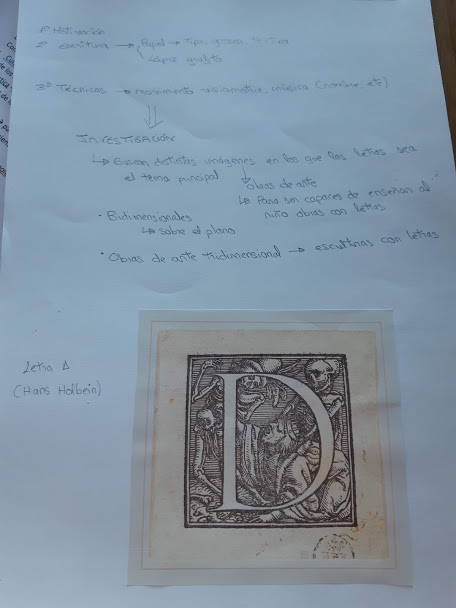 1º Motivación
2º escritura → Papel → Tipo, grosor,
lápiz grafito
3º Técnicas → movimiento visomotriz, música (nombre, etc)
INVESTIGACIÓN
↳ Buscar distintas imágenes en las que las letras sea
el tema principal
obras de arte
↳ Para ser capaces de enseñar al
niño obras con letras
• Bidimensionales
↳ sobre el plano
• Obras de arte tridimensional → esculturas con letras
Letra
(Hans Holbein)
D